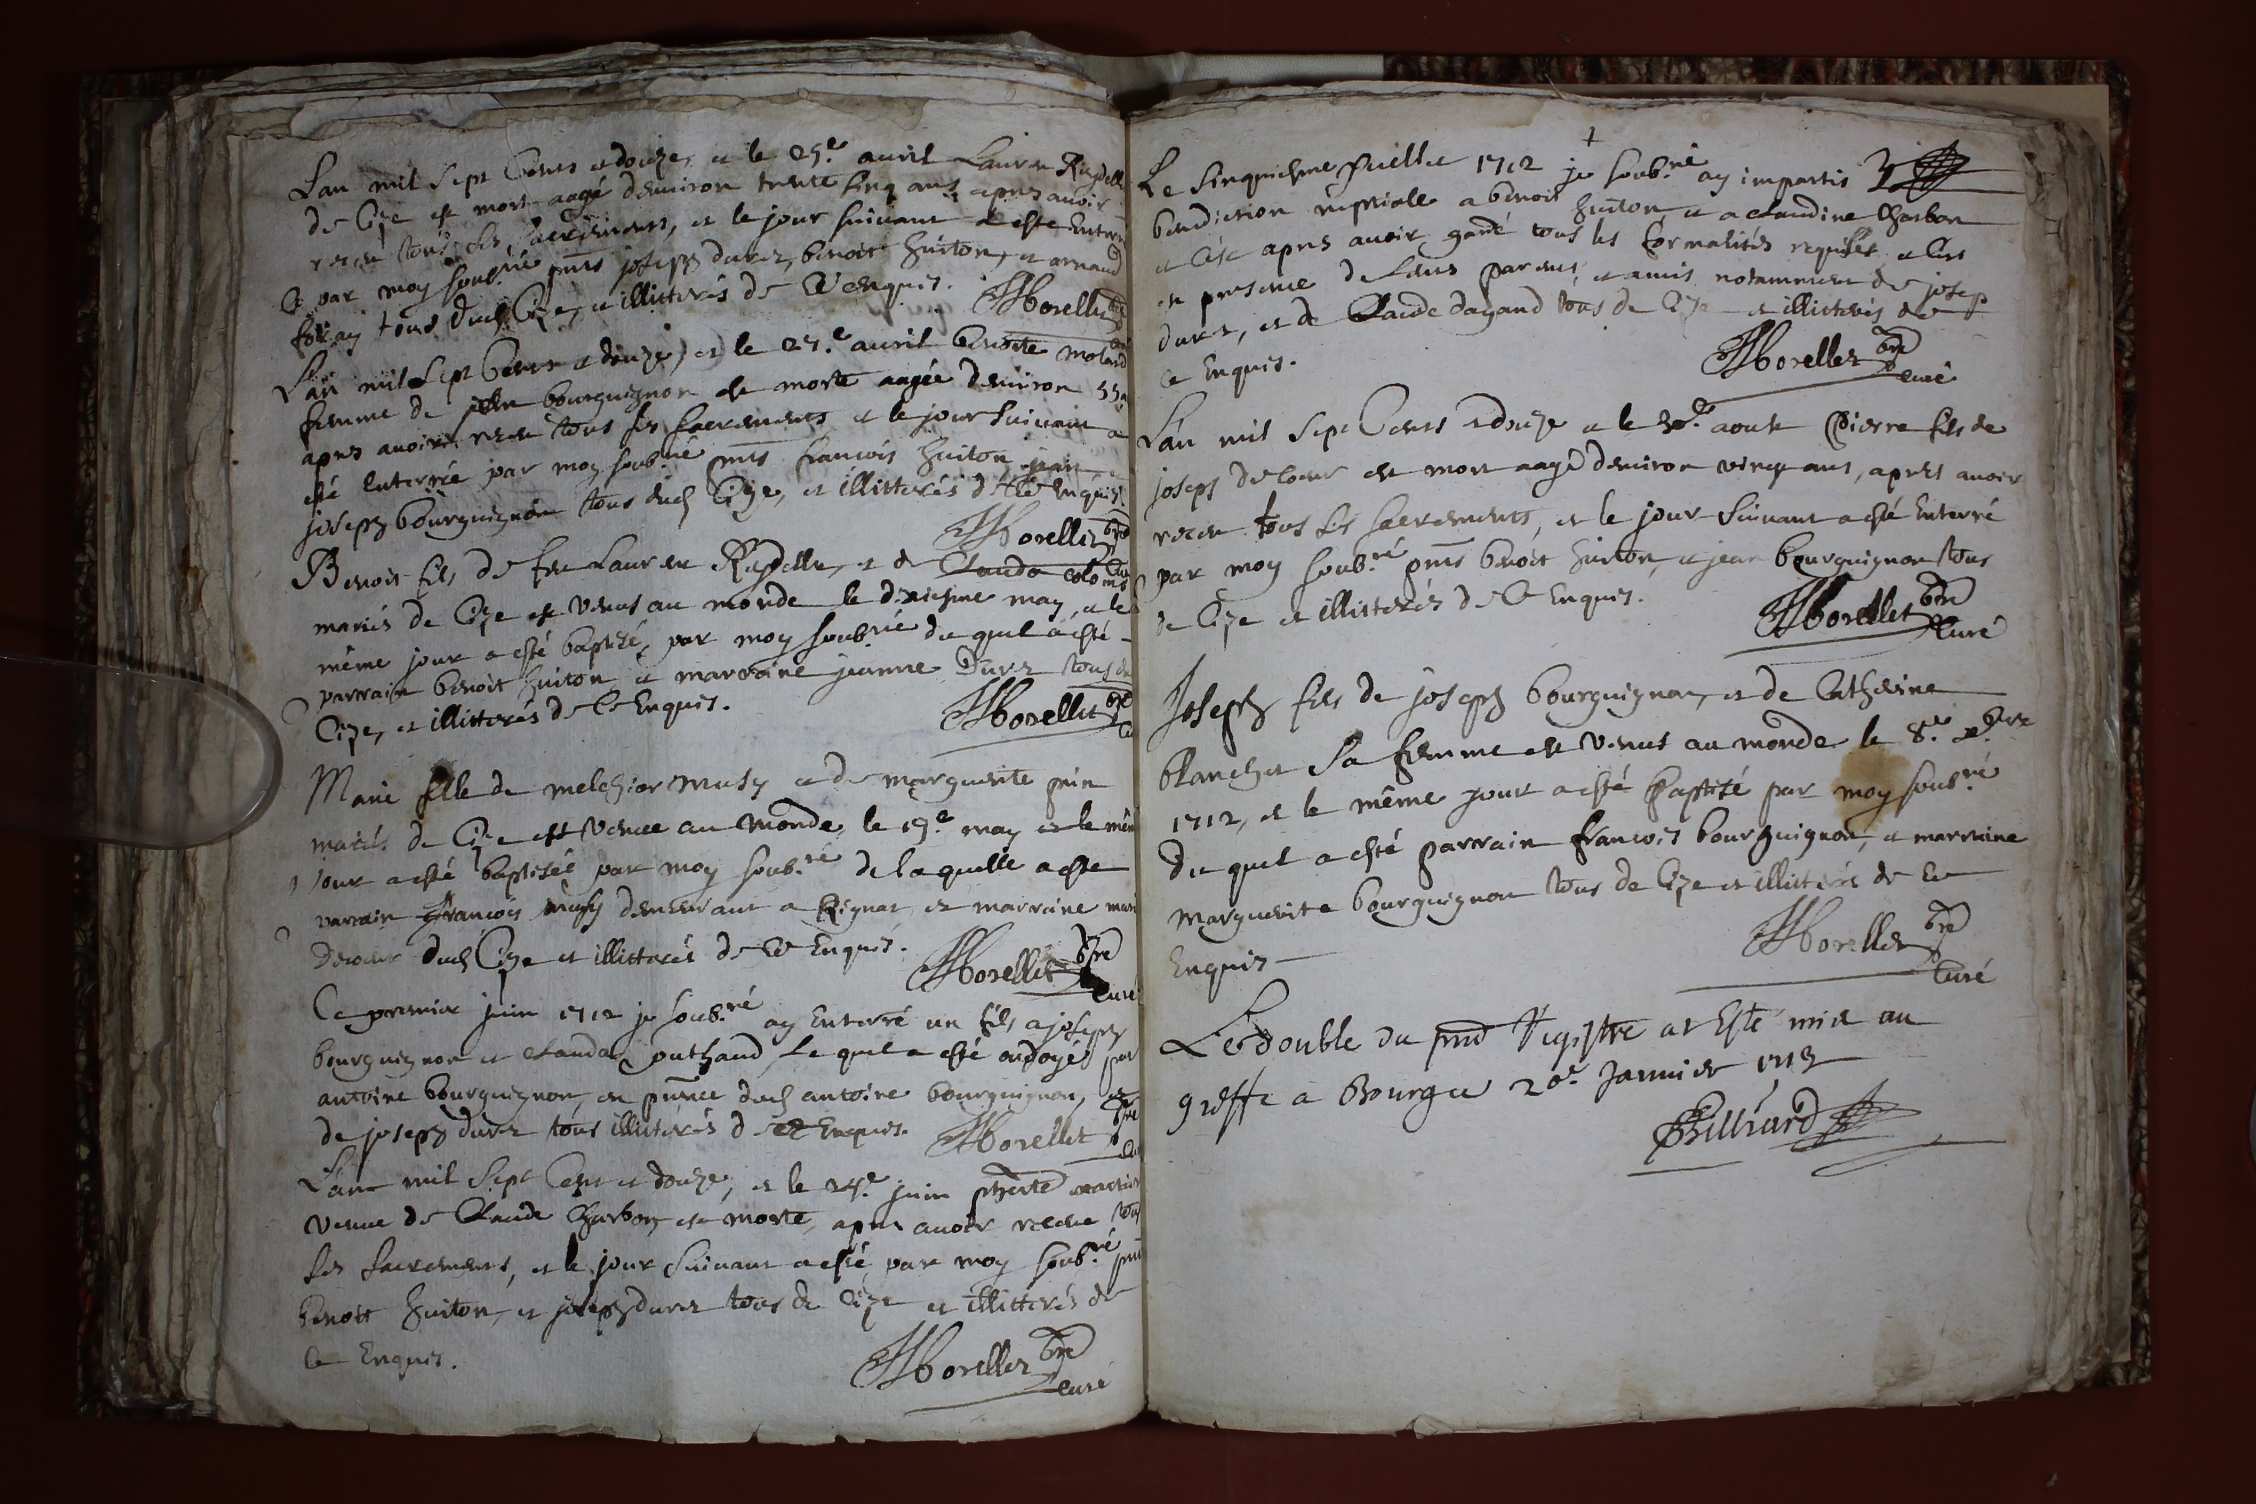 Lan mil sept Cents et douze, et le 25.e avril Lauren Rigdelle
de Cize est mort aagé denviron trente sinq ans apres avoir
receu tous ses sacrements, et le jour suivant a este Enterré
par moy soub.né pnts joseph durez, benoit huiton, et arnaud
foray tous dud Cize, et illitterés de Ce enquis. Morellet
Lan mil sept Cents et douze, et le 27.e avril benoite molard
femme de jean bourguignon est morte aagée denviron 55
apres avoir receu tous ses sacrements et le jour suivant a
esté enterrée par moy soub.né pnts francois huiton, jean
joseph bourguignon tous dud Cize, et illitterés de Ce Enquis
Morellet pre
Benoit fils de feu Lauren Rigdelle, et de Clauda
mariés de Cize est venus au monde le dixiesme may, et le
même jour a esté baptizé, par moy soub.né du quel a esté
parrain benoit huiton et marraine jeanne Durez tous de
Cize, et illitterés de Ce Enquis. Morellet pre
Marie fille de melchior musy et de marguerite
mariés de Cize est venue au monde, le 19.e may et le même
jour a esté baptisée par moy soub.né de laquelle a este
parrain francois musy demeurant a Rignat et marraine
Decoeur dud Cize et illitterés de Ce Enquis. Morellet pre
Curé
Ce premier juin 1712 je soub.né ay Enterré un fils a joseph
bourguignon et Clauda puthaud, le quel a esté ondoyé par
antoine bourguignon, en pnce dud antoine bourguignon, et
de joseph durez tous illitterés de ce Enquis. Morellet pre
Lan mil sept Cens et douze, et le 24.e juin
veuve de Claude Charbon est morte, apres avoir receue tous
ses sacrements, et le jour suivant a esté par moy soub.né pnts
benoit huiton, et joseph durez tous de Cize et illitterés de
ce Enquis.
Morellet pre
curé
Le sinquiesme Juillet 1712 je soub.né ay impartis
benediction nuptialle a benoit huiton et a claudine Charbon
et Ce apres avoir gardé tous les formalités requises et
en presence de leurs parens et amis notamment de josep
durez, et de Claude dagand tous de Cize et illitterés de
ce Enquis.
Morellet pre
curé
Lan mil sept Cents et douze et le aoust Pierre fils de
joseph decoeur est mort aagé denviron vingt ans, apres avoir
receu tous ses sacrements, et le jour suivant a esté Enterré
par moy soub.né pnts benoit huiton, et jean bourguignon tous
de Cize et illitterés de Ce Enquis.
Morellet pre
Curé
Joseph fils de joseph bourguignon, et de Catherine
blanchet sa femme est venus au monde le 8.e
1712, et le même jour a esté Baptisé par moy soub.né
du quel a esté parrain francois bourguignon, et marraine
marguerite bourguignon tous de Cize et illitterés de ce
Enquis
Morellet pre
Curé
Le double du pnt Registre at Esté mis au
greffe a Bourg ce 20e Janvier 1713
Billiard